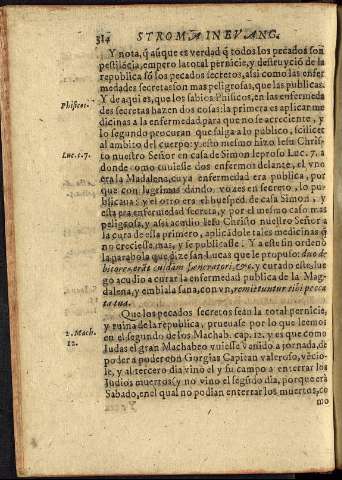 314 STROMA IN EVANG.
Y nota, q̃ aũque es verdad q̃ todos los pecados son
pestilẽcia, empero la total pernicie, y destruyciõ de la
republica sõ los pecados secretos, asi como las enfer
medades secretas son mas peligrosas, que las publicas.
Phisicos.
Y de aqui es, que los sabios Phisicos, en las enfermeda
des secretas hazen dos cosas: la primera es aplicar me
dicinas a la enfermedad para que no se acreciente, y
lo segundo procuran que salga a lo publico, scilicet
al ambito del cuerpo: y esto mesmo hizo Iesu Chris
Luc. c. 7.
to nuestro Señor en casa de Simon leproso Luc. 7. a
donde como tuuiesse dos enfermos delante, el vno
era la Madalena, cuya enfermedad era publica, por
que con lagrimas dando vozes en secreto, lo pu
blicaua: y el otro era el huesped de casa Simon, y
esta era enfermedad secreta, y por el mesmo caso mas
peligrosa, y asi acudio Iesu Christo nuestro Señor a
la cura de esta primero aplicãdole tales medicinas q̃
no creciesse mas, y se publicasse: Y a este fin ordenò
la parabola que dize san Lucas que le propuso: duo de
bitores erãt cuidam fœneratori, &c. y curado este, lue
gò acudio a curar la enfermedad publica de la Mag-
dalena, y embiala sana, con vn, remittuntur tibi pecca
ta tua.
Que los pecados secretos sean la total pernicie,
2. Mach.
12.
y ruina de la republica, prueuase por lo que leemos
en el segundo de los Machab. cap. 12. y es que como
Iudas el gran Machabeo vuiesse venido a jornada, de
poder a poder con Gorgias Capitan valeroso, vẽcio-
le, y al tercero dia vino el y su campo a enterrar los
Iudios muertos (y no vino el segũdo dia, porque era
Sabado, en el qual no podian enterrar los muertos, co
mo